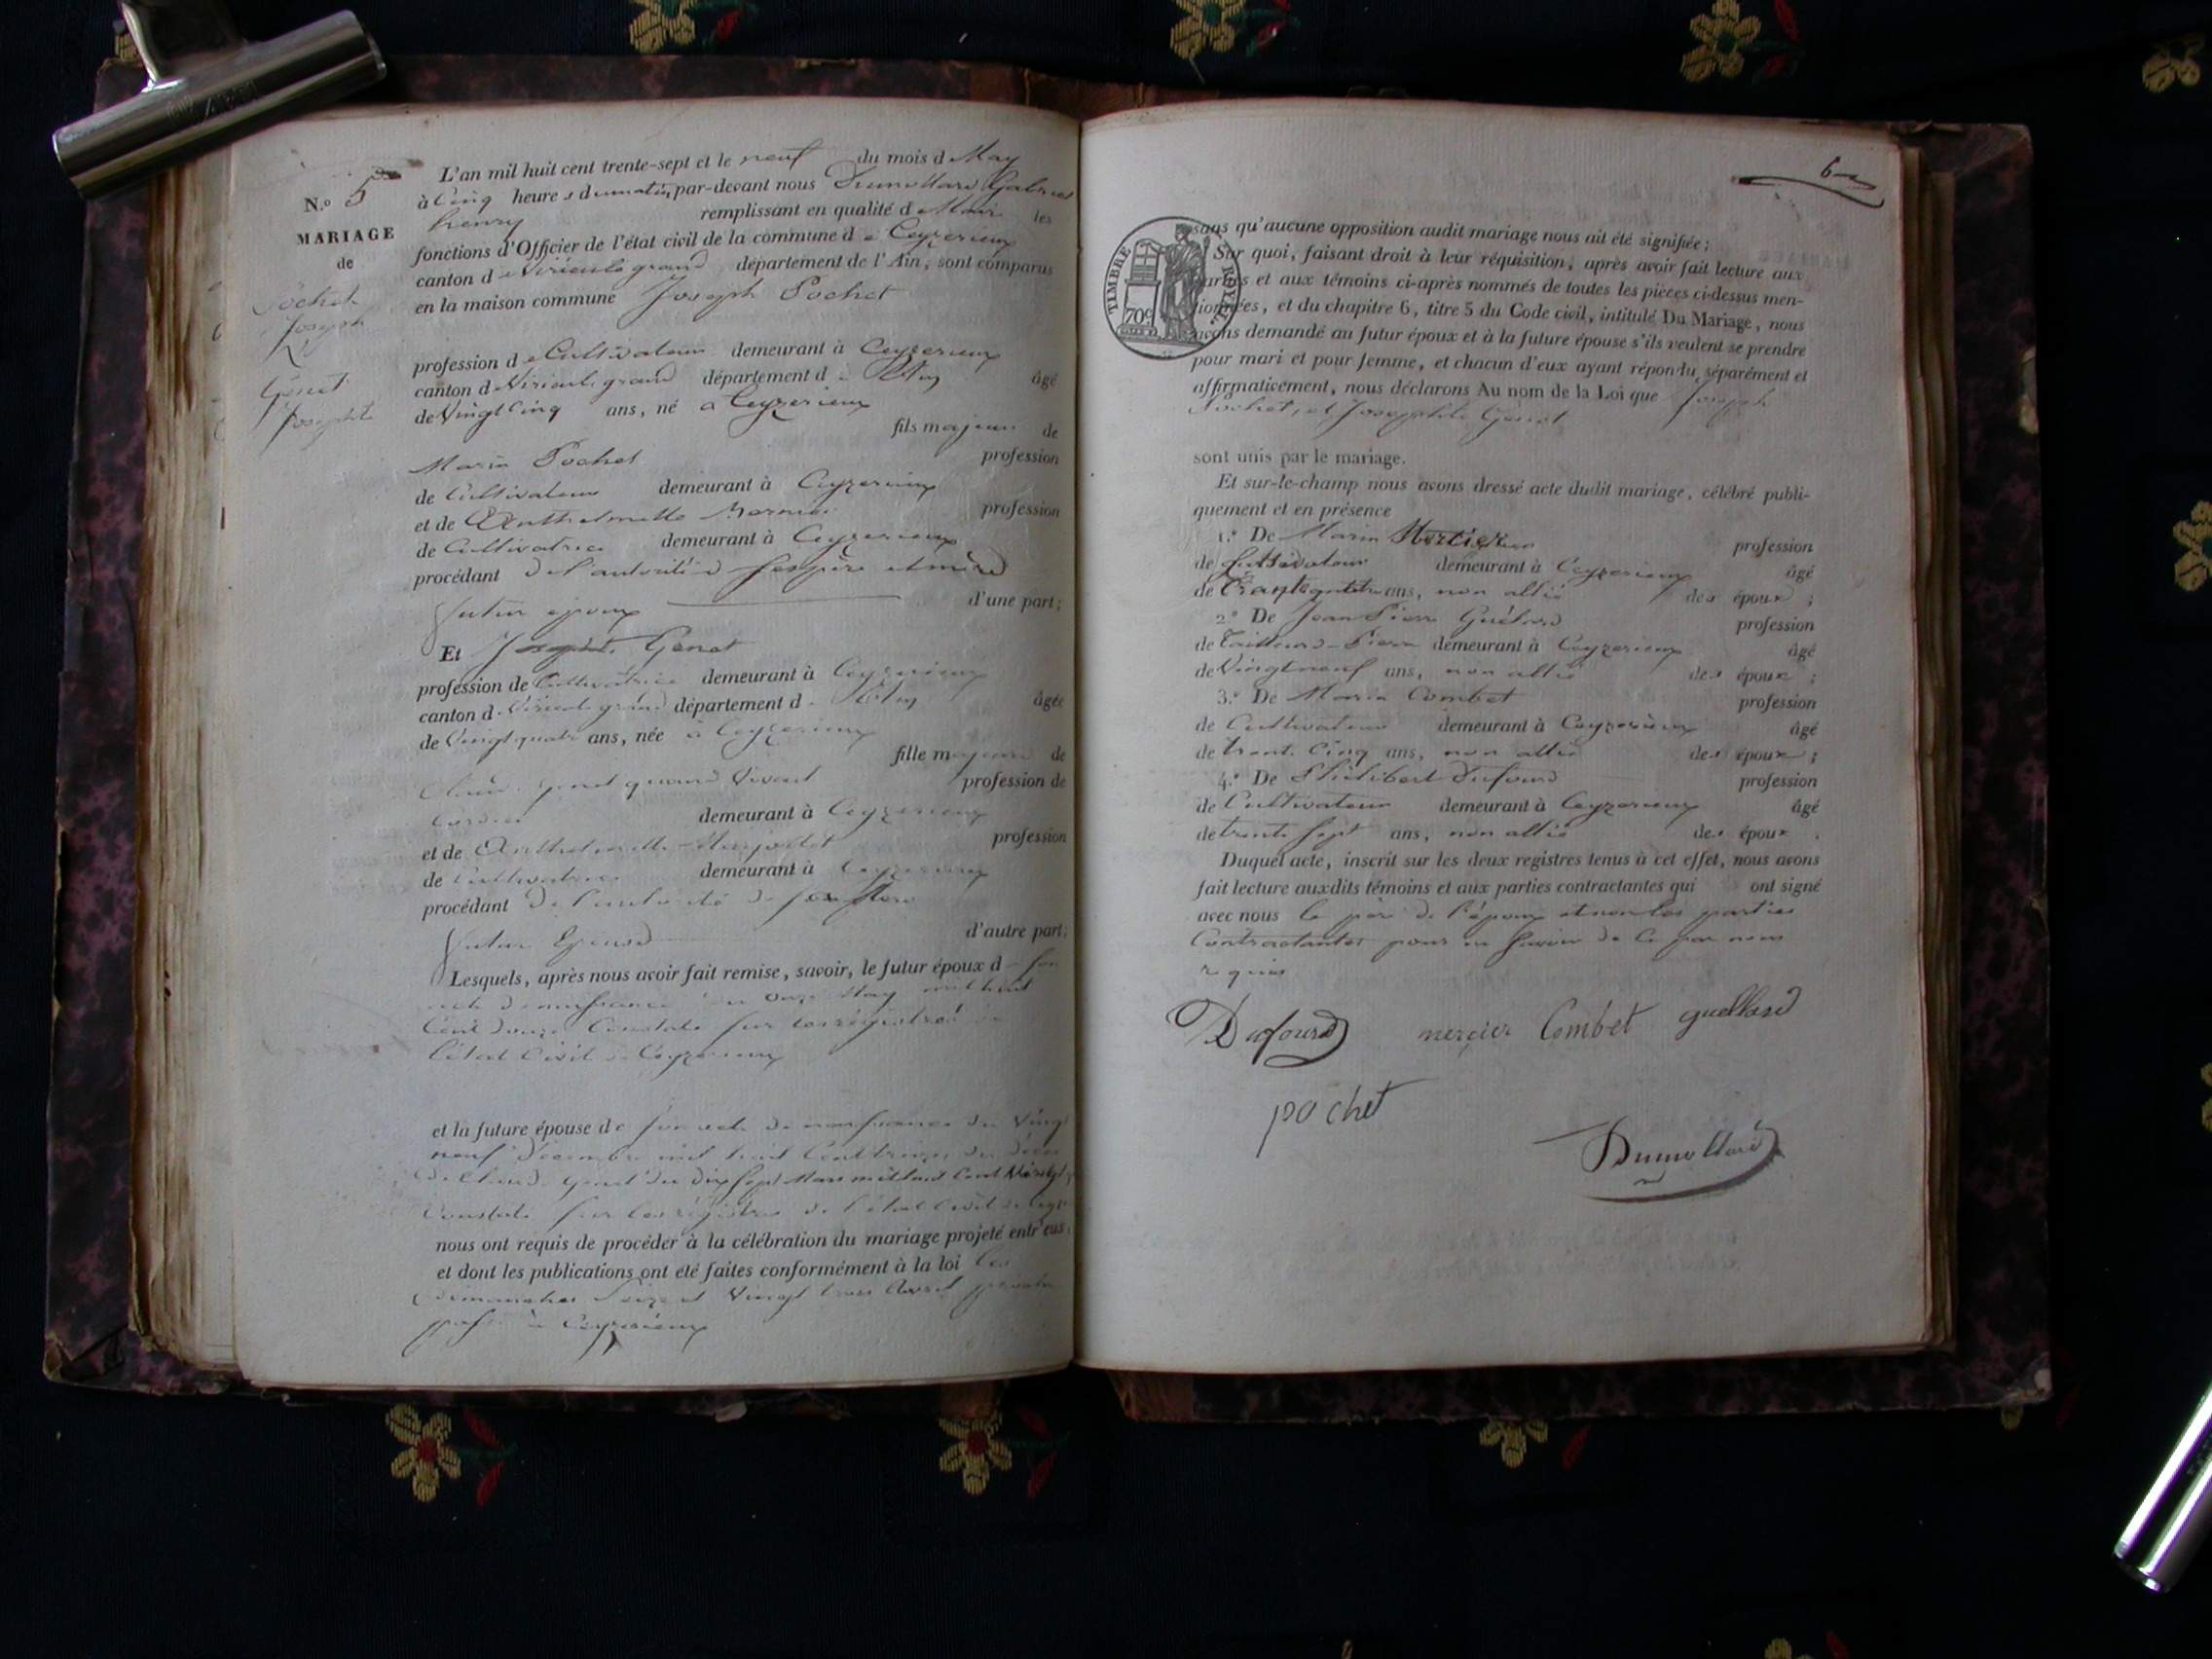 N.o 5
MARIAGE
de
Pochet
Joseph
&
Genet
Josephte
L'an mil huit cent trente-sept et le neuf du mois d May
à Cinq heures du matin par-devant nous Dumollard Gabriel
henry remplissant en qualité de Maire les
fonctions d'Officier de l'état civil de la commune de Ceyzerieux
canton de Virieu le grand département de l'Ain, sont comparus
en la maison commune Joseph Pochet
profession de Cultivateur demeurant à Ceyzerieux
canton de Virieu le grand département de l'Ain âgé
de Vingt Cinq ans, né à Ceyzerieux
fils majeur de
Marin Pochet profession
de Cultivateur demeurant à Ceyzerieux
et de Anthelmette profession
de Cultivatrice demeurant à Ceyzerieux
procédant de l'autorité de ses père et mère
futur époux d'une part;
Et Josephte Genet
profession de Cultivatrice demeurant à Ceyzerieux
canton de Virieu le grand département de l'Ain âgée
de Vingt quatre ans, née à Ceyzerieux
fille majeure de
Claude genet quand Vivait profession de
demeurant à Ceyzerieux
et de Anthelmette profession
de Cultivatrice demeurant à Ceyzerieux
procédant de l'autorité de sa Mere
future Epouse d'autre part;
Lesquels, après nous avoir fait remise, savoir, le futur époux de son
acte de naissance du onze May mil huit
Cent douze Constaté sur les régistres de
l'état Civil de Ceyzerieux
et la future épouse de son acte de naissance du Vingt
neuf décembre mil huit Cent treize, du décès
de Claude genet du dix sept Mars mil huit Cent Vingt
Constaté sur les régistres de l'état Civil de Ceyz
nous ont requis de procéder à la célébration du mariage projeté entr'eux,
et dont les publications ont été faites conformément à la loi les
dimanches Seize et Vingt trois Avril
passé à Ceyzerieux
6
TIMBRE ROYAL
70c
sans qu'aucune opposition audit mariage nous ait été signifiée;
Sur quoi, faisant droit à leur réquisition, après avoir fait lecture aux
parties et aux témoins ci-après nommés de toutes les pièces ci-dessus men-
tionnées, et du chapitre 6, titre 5 du Code civil, intitulé Du Mariage, nous
avons demandé au futur époux et à la future épouse s'ils veulent se prendre
pour mari et pour femme, et chacun d'eux ayant répondu séparément et
affirmativement, nous déclarons Au nom de la Loi que Joseph
Pochet, et Josephte Genet
sont unis par le mariage.
Et sur-le-champ nous avons dressé acte dudit mariage, célébré publi-
quement et en présence
1.° De Marin profession
de Cultivateur demeurant à Ceyzerieux âgé
de ans, non allié des époux;
2.° De Jean Pierre Guélard profession
de Tailleur de Pierre demeurant à Ceyzerieux âgé
de Vingt neuf ans, non allié des époux;
3.° De Marin Combet profession
de Cultivateur demeurant à Ceyzerieux âgé
de trente Cinq ans, non allié des époux;
4.° De Philibert Dufourd profession
de Cultivateur demeurant à Ceyzerieux âgé
de trente Sept ans, non allié des époux.
Duquel acte, inscrit sur les deux registres tenus à cet effet, nous avons
fait lecture auxdits témoins et aux parties contractantes qui ont signé
avec nous le père de l'époux et non les parties
Contractantes pour ne Savoir de Ce par nous
requis
Dufourd mercier Combet guellard
pochet
Dumollard